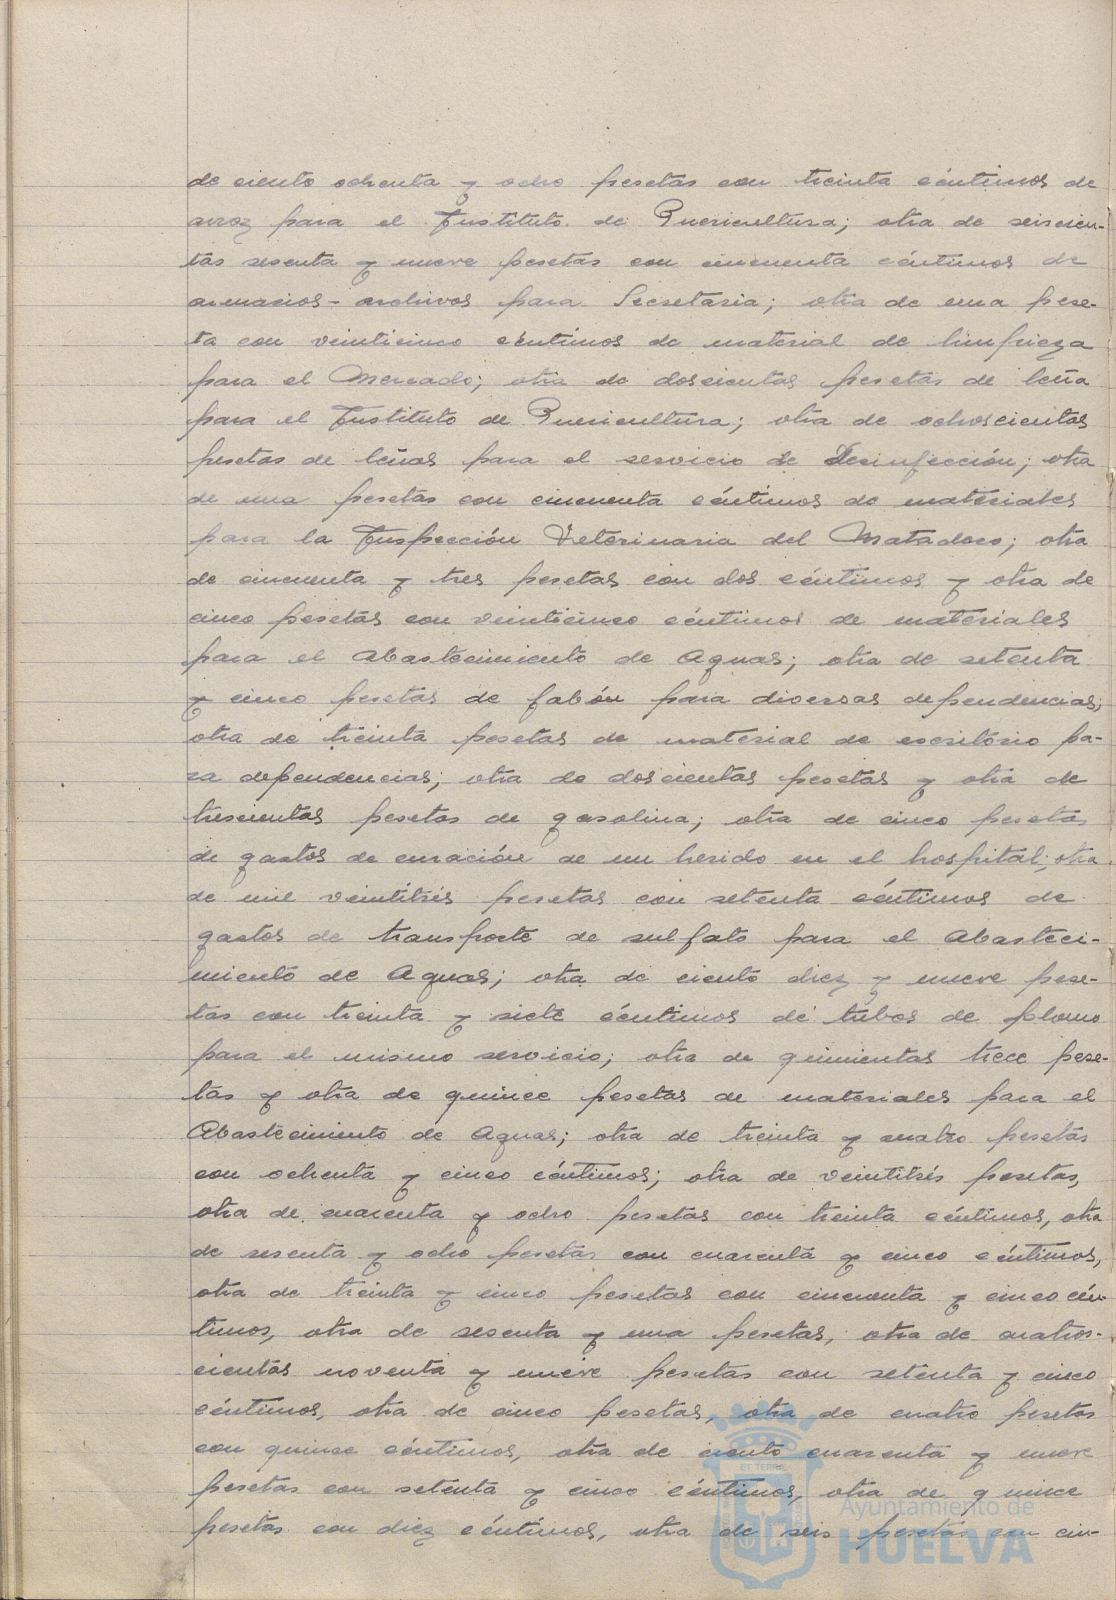 de ciento ochenta y ocho pesetas con treinta céntimos de
arroz para el Instituto de Puericultura; otra de seiscien-
tas sesenta y nueve pesetas con cincuenta céntimos de
armacios-archivos para Secretaria; otra de una pese-
ta con veinticinco céntimos de material de limpieza
para el Mercado; otra de doscientas pesetas de leña
para el Instituto de Puericultura; otra de ochoscientas
pesetas de leñas para el servicio de Desinfección; otra
de una pesetas con cincuenta céntimos de materiales
para la Inspección Veterinaria del Matadero; otra
de cincuenta y tres pesetas con dos céntimos y otra de
cinco pesetas con veinticinco céntimos de materiales
para el Abastecimiento de Aguas; otra de setenta
y cinco pesetas de jabón para diversas dependencias;
otra de treinta pesetas de material de escritorio pa-
ra dependencias; otra de doscientas pesetas y otra de
trescientas pesetas de gasolina; otra de cinco pesetas
de gastos de curación de un herido en el hospital; otra
de mil veintitrés pesetas con setenta céntimos de
gastos de transporte de sulfato para el Abasteci-
miento de Aguas; otra de ciento diez y nueve pese-
tas con treinta y siete céntimos de tubos de plomo
para el mismo servicio; otra de quinientas trece pese-
tas y otra de quince pesetas de materiales para el
Abastecimiento de Aguas; otra de treinta y cuatro pesetas
con ochenta y cinco céntimos; otra de veintitrés pesetas,
otra de cuarenta y ocho pesetas con treinta céntimos, otra
de sesenta y ocho pesetas con cuarenta y cinco céntimos,
otra de treinta y cinco pesetas con cincuenta y cinco cén-
timos, otra de sesenta y una pesetas, otra de cuatros-
cientas noventa y nueve pesetas con setenta y cinco
céntimos, otra de cinco pesetas, otra de cuatro pesetas
con quince céntimos, otra de ciento cuarenta y nueve
pesetas con setenta y cinco céntimos, otra de quince
pesetas con diez céntimos, otra de seis pesetas con cin-
Ayuntamiento de
HUELVA